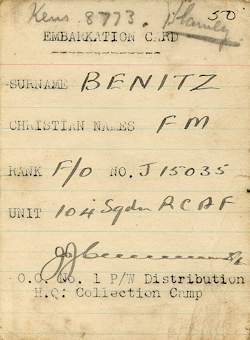 Kens. 8773. 50
EMBARKATION CARD
SURNAME BENITZ
CHRISTIAN NAMES F M
RANK F/O NO. J 15035
UNIT 104 Sqdn RCAF
O.C. No. 1 P/W Distribution
H.Q: Collection Camp